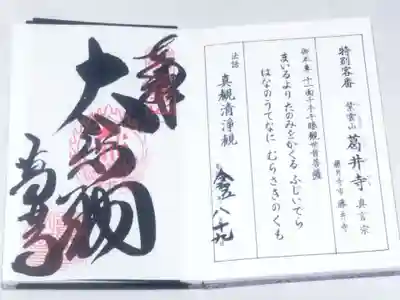 特別客番
紫雲山 葛井寺 真言宗
藤井寺市 藤井寺
御本尊 十一面千手千眼観世音菩薩
まいるより たのみをかくる ふじいでら
はなのうてなに むらさきのくも
法話 真観清浄観
奉拝
大悲閣